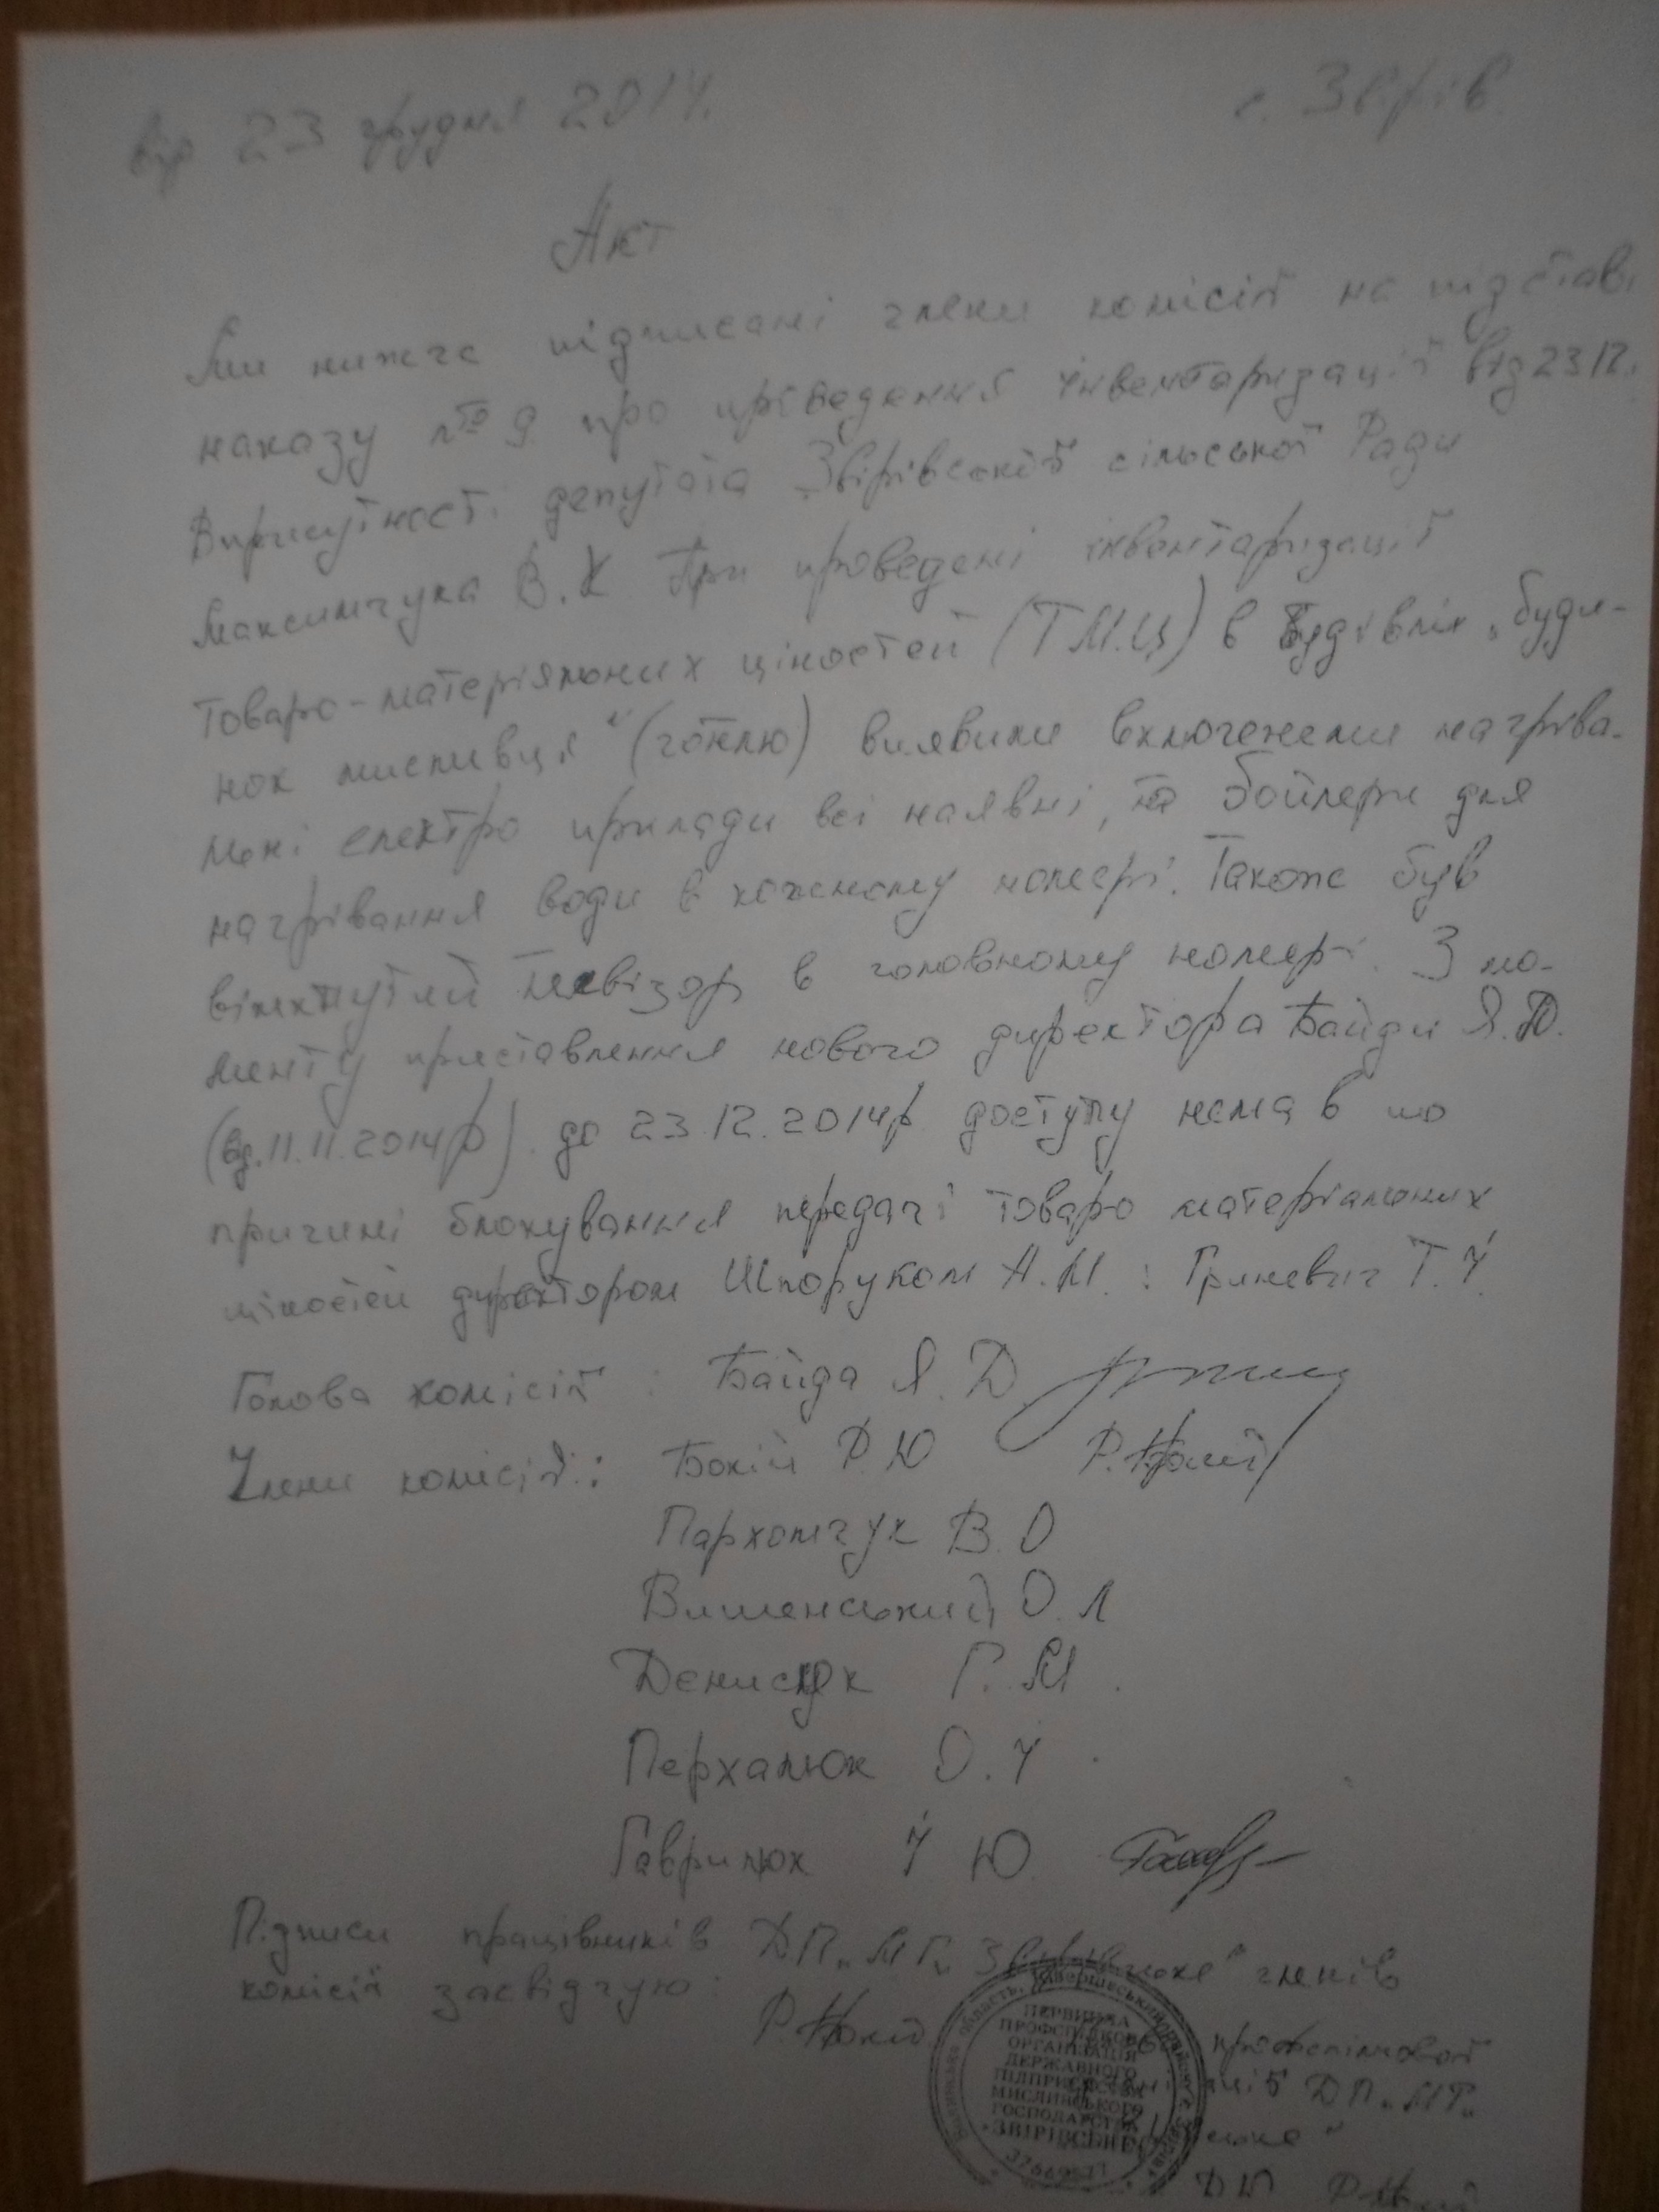 від 23 грудня 2014. с. Звірів.
Акт
Ми нижче підписані члени комісії на підставі
наказу №9 про проведення інвентаризації від 23 12.
В присутності депутата Звірівської сільської Ради
Максимчука В.К При проведені інвентаризації
товаро-матеріяльних ціностей (Т.М.Ц) в будівлях „буди-
нок мисливця" (готелю) виявили включеними нагріва-
льні електро прилади всі наявні, та бойлери для
нагрівання води в кожному номері. Також був
вімкнутий телевізор в головному номері. З мо-
менту приставлення нового директора Байди Я.Д.
(від.11.11.2014р). до 23.12.2014р доступу нема в по
причині блокування передачі товаро матеріальних
ціностей директором Шпоруком А.М. : Гриневич Т.І.
Голова комісії : Байда Я.Д
Члени комісії : Бокій Р.Ю Р.Бокій
Пархомчук В.О
Вишенський О.Л
Денисюк Г.М.
Перхалюк О.І.
Гаврилюк І Ю
Підписи працівників ДП „МГ„ Звірівське" членів
комісії засвідчую :
Р.Бокій профспілкової
ДП „МГ„
ПЕРВИННА
ПРОФСПІЛКОВА
ОРГАНІЗАЦІЯ
ДЕРЖАВНОГО
ПІДПРИЄМСТВА
МИСЛИВСЬКОГО
ГОСПОДАРСТВА
"ЗВІРІВСЬКЕ"